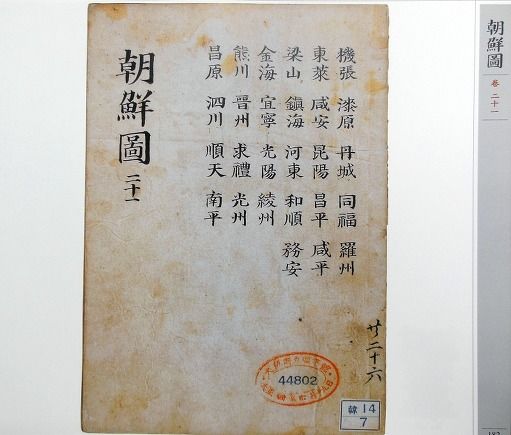 朝鮮圖
卷 二十一
機張 漆原 丹城 同福 羅州
東萊 咸安 昆陽 昌平 咸平
梁山 鎭海 河東 和順 務安
金海 宜寧 光陽 綾州
熊川 晉州 求禮 光州
昌原 泗川 順天 南平
朝鮮圖 二十一
二十六
44802
韓 14
7